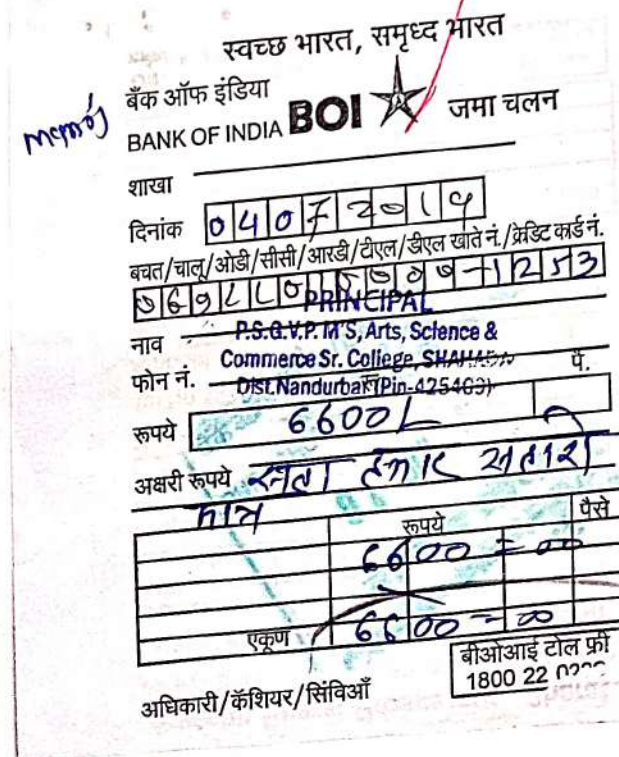 स्वच्छ भारत, समृध्द भारत
बँक ऑफ इंडिया
BANK OF INDIA BOI जमा चलन
शाखा
दिनांक 04072019
बचत/चालू/ओडी/सीसी/आरडी/टीएल/डीएल खाते नं./क्रेडिट कार्ड नं.
PRINCIPAL
नाव P.S.G.V.P. M'S, Arts, Science &
Commerce Sr. College, SHAHADA
फोन नं. Dist.Nandurbar (Pin-425409)
पै.
रूपये 6600/-
अक्षरी रूपये
मात्र
रूपये पैसे
6600 = 00
एकूण 6600 = 00
बीओआई टोल फ्री
1800 22
अधिकारी/कॅशियर/सिंविआँ